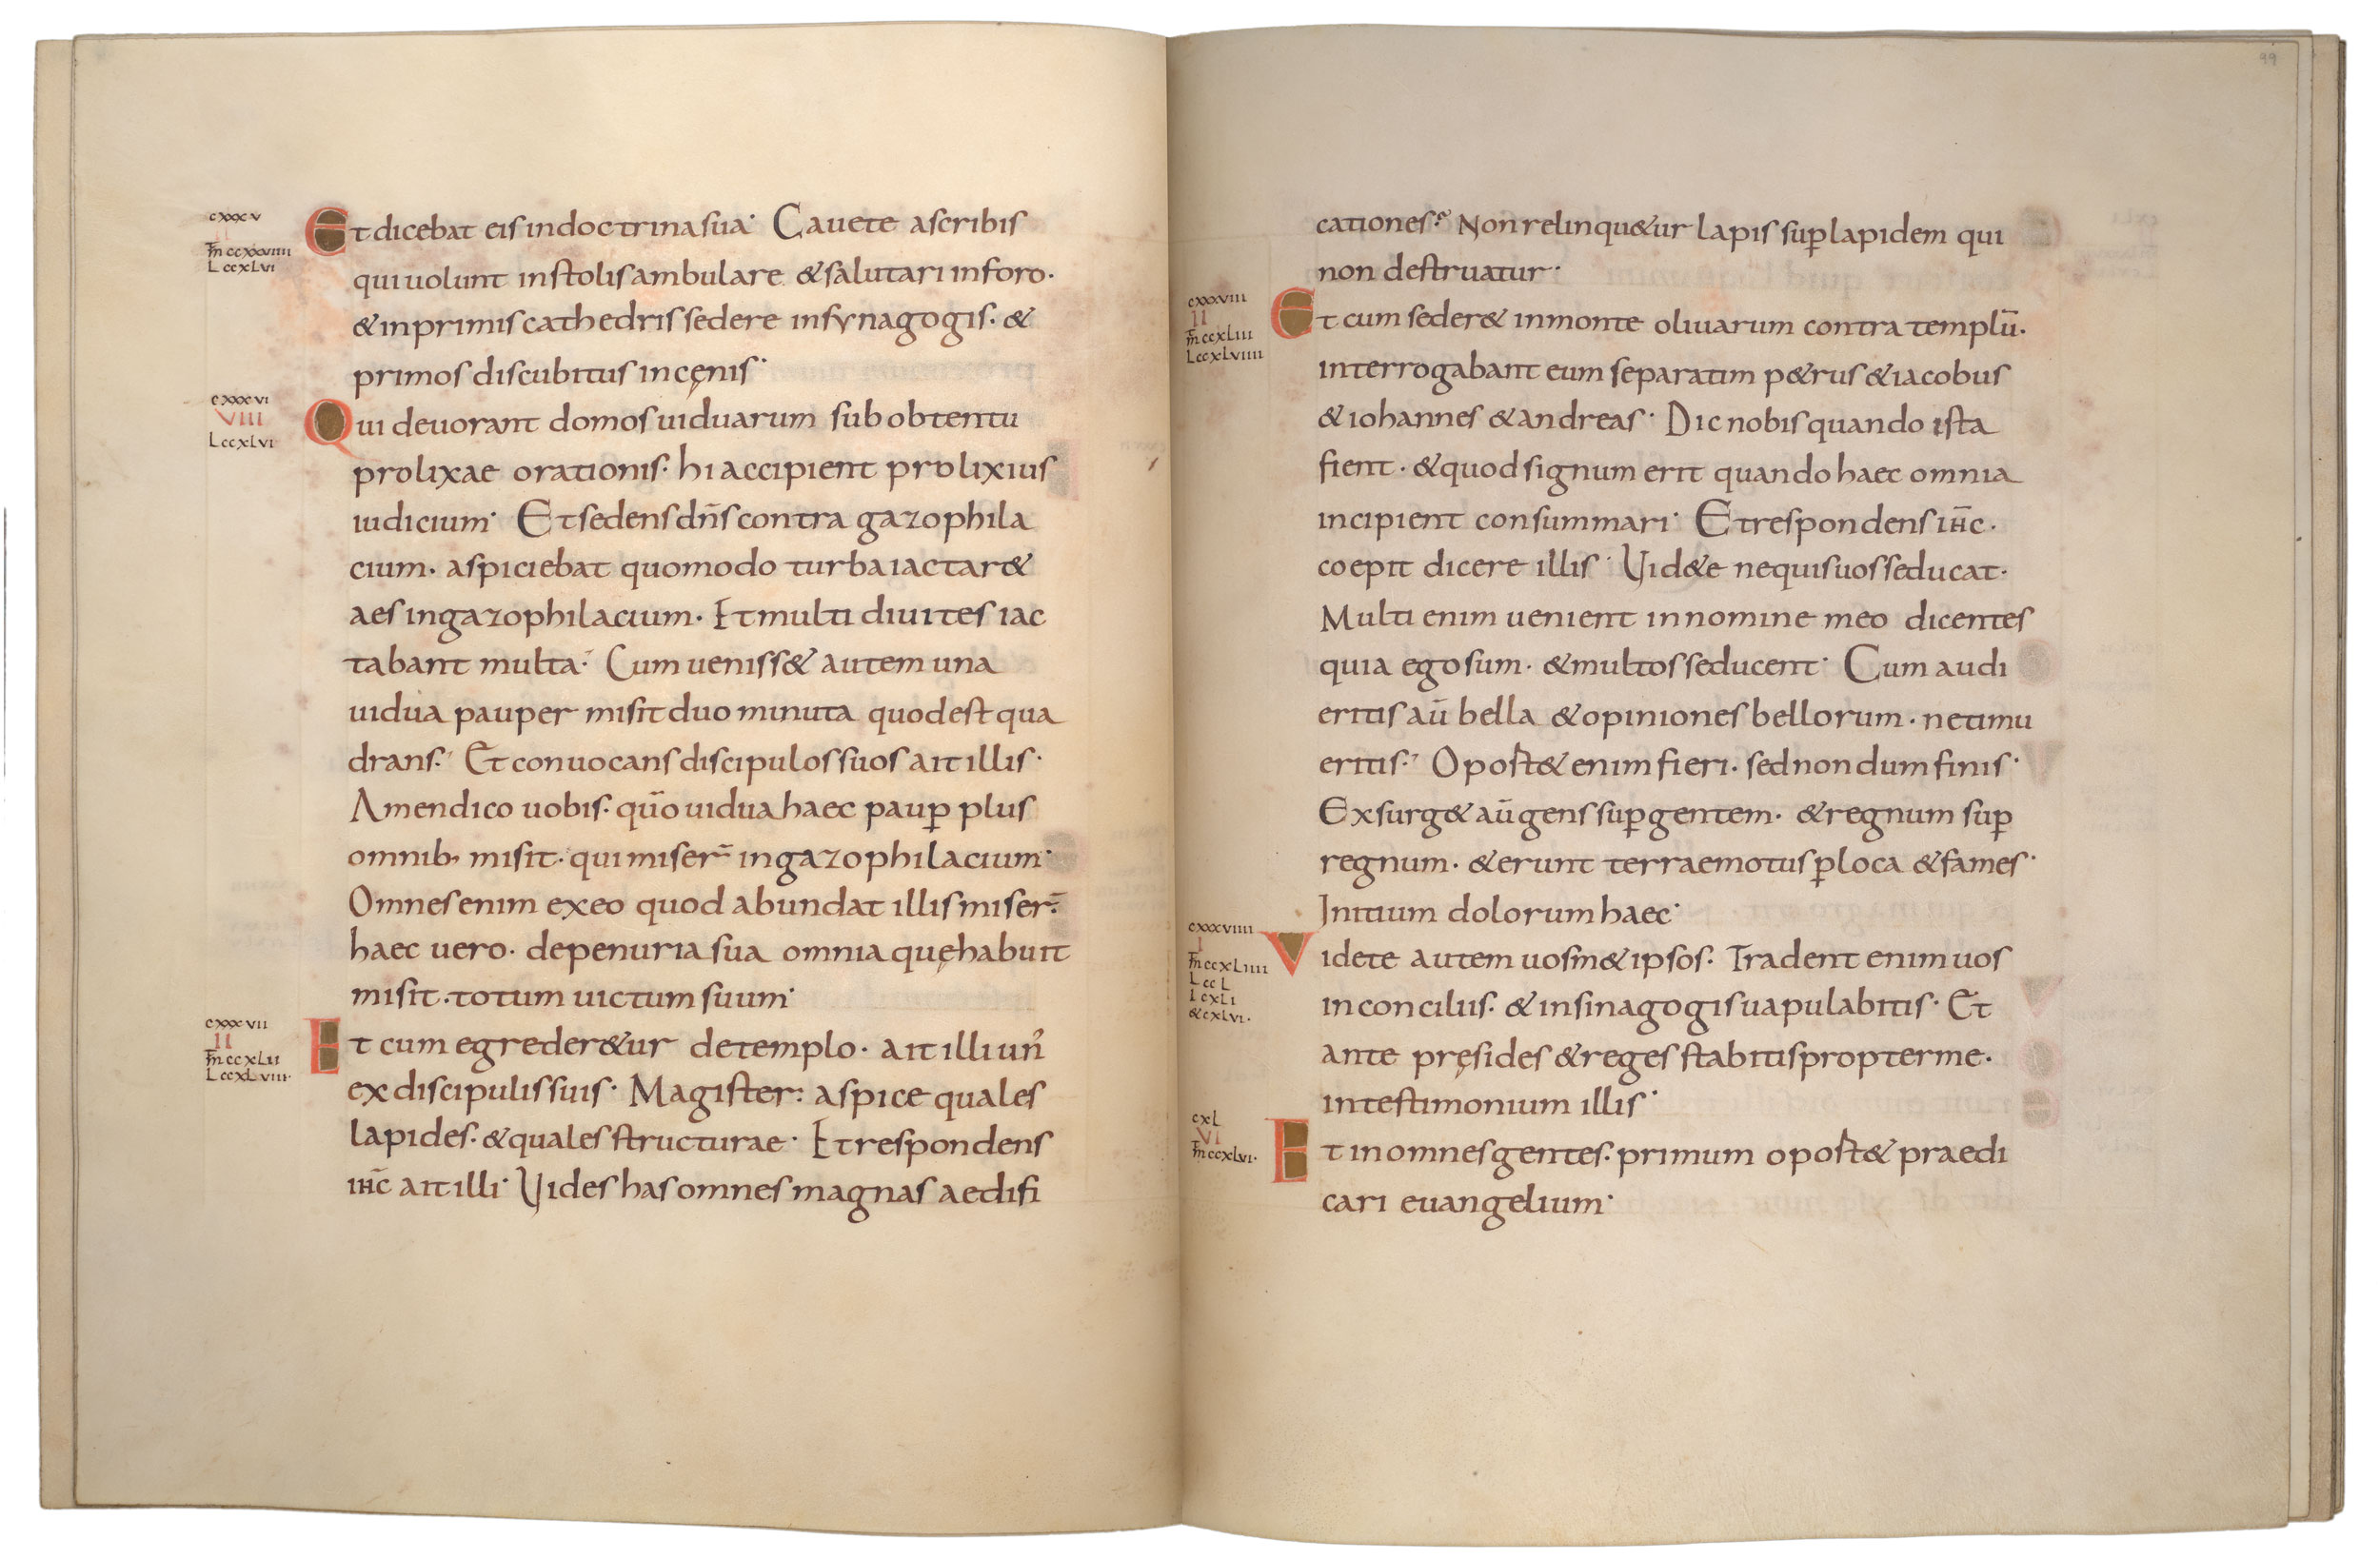 cxxxv
II
m̄ ccxxviiii
L ccxLvi
Et dicebat eis in doctrina sua· Cavete a scribis
qui uolunt in stolis ambulare & salutari in foro·
& in primis cathedris sedere in synagogis· &
primos discubitus in cęnis·
cxxxvi
VIII
L ccxLvi
Qui deuorant domos uiduarum sub obtentu
prolixae orationis· hi accipient prolixius
iudicium· Et sedens dn̄s contra gazophila
cium· aspiciebat quomodo turba iactar&
aes in gazophilacium· Et multi diuites iac
tabant multa· Cum ueniss& autem una
uidua pauper misit duo minuta quod est qua
drans· Et conuocans discipulos suos ait illis·
Amen dico uobis· qūo uidua haec paup̲ plus
omnib; misit· qui miser̄ in gazophilacium·
Omnes enim ex eo quod abundat illis miser̄·
haec uero· de penuria sua omnia quę habuit
misit· totum uictum suum·
cxxxvii
II
m̄ ccxLii
L ccxLviii·
Et cum egreder&ur de templo· ait illi un᾽
ex discipulis suis· Magister: aspice quales
lapides· & quales structurae· Et respondens
ih̄c ait illi· Uides has omnes magnas aedifi
99
cationes? Non relinqu&ur lapis sup̲ lapidem qui
non destruatur·
cxxxviii
II
m̄ ccxLiii
L ccxLviiii
Et cum seder& in monte oliuarum contra templū·
interrogabant eum separatim p&rus & iacobus
& iohannes & andreas· Dic nobis quando ista
fient· & quod signum erit quando haec omnia
incipient consummari· Et respondens ih̄c·
coepit dicere illis· Uid&e ne quis uos seducat·
Multi enim uenient in nomine meo dicentes
quia ego sum· & multos seducent· Cum audi
eritis aū bella & opiniones bellorum· ne timu
eritis· Oport& enim fieri· sed nondum finis·
Exsurg& aū gens sup̲ gentem· & regnum sup̲
regnum· & erunt terraemotus p̲ loca & fames·
Initium dolorum haec·
cxxxviiii
I
m̄ ccxLiiii
L ccL
I cxLi
& cxLvi·
Videte autem uosm& ipsos· Tradent enim uos
in conciliis· & in sinagogis uapulabitis· Et
ante pręsides & reges stabitis propter me·
in testimonium illis·
cxL
VI
m̄ ccxLvi·
Et in omnes gentes· primum oport& praedi
cari euangelium·